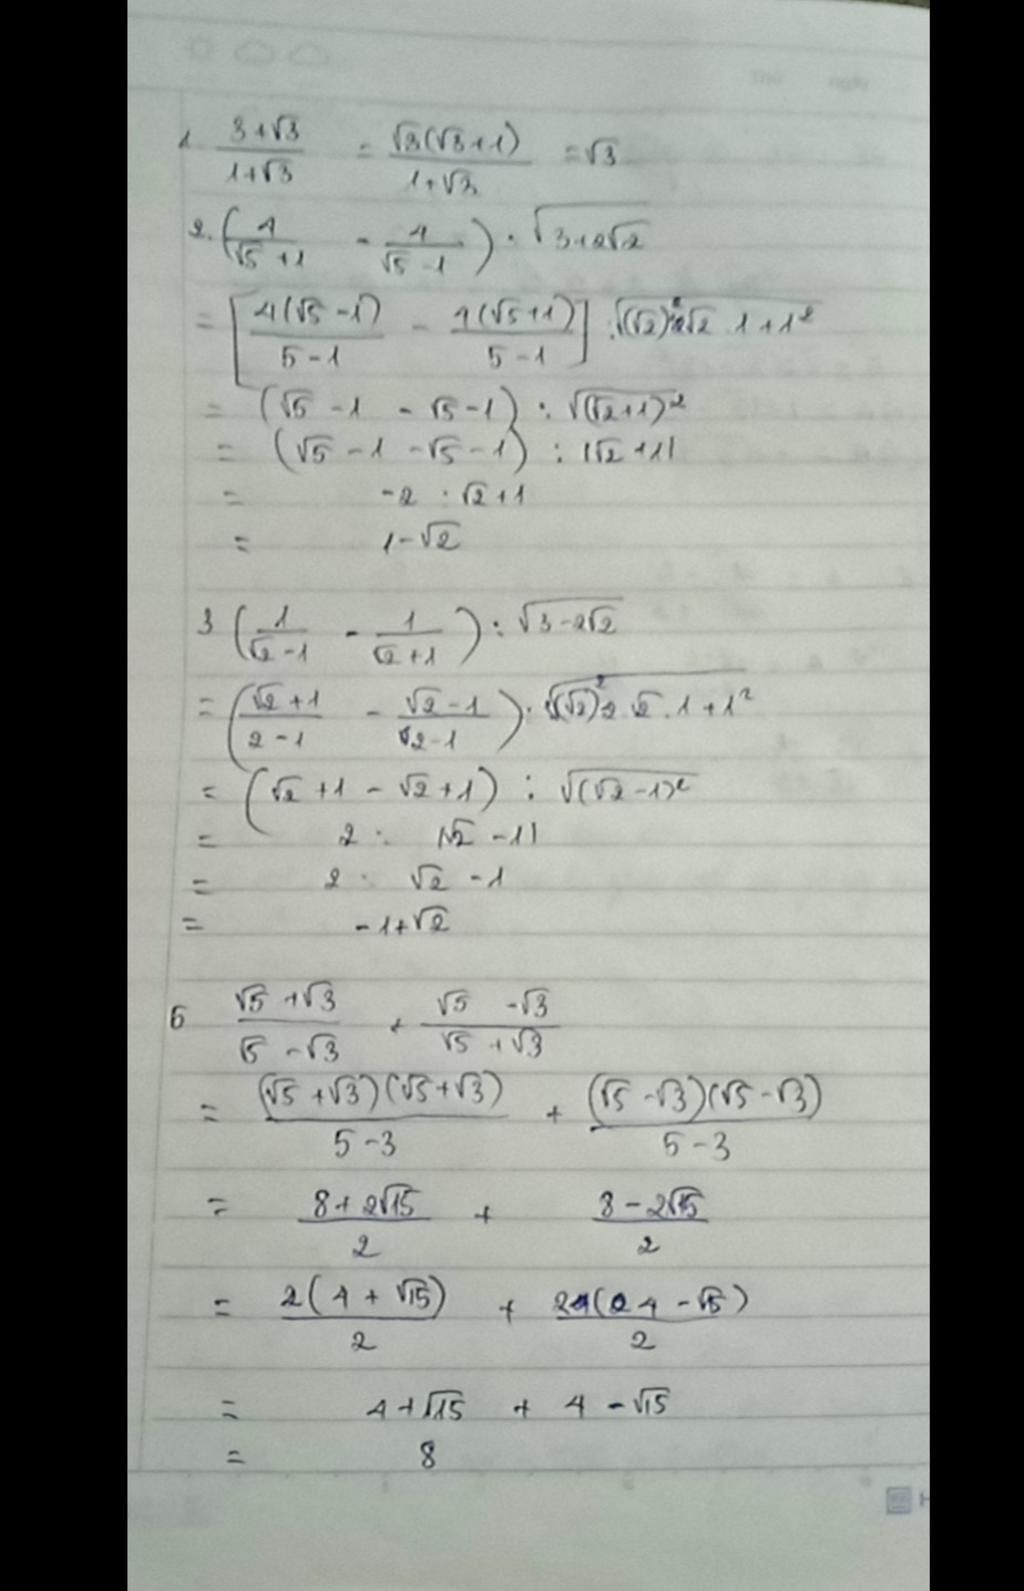 1. \frac{3+√3}{1+√3} = \frac{√3(√3+1)}{1+√3} = √3
2. (\frac{4}{√5+1} - \frac{4}{√5-1}) : \sqrt{3+2√2}
= [\frac{4(√5-1)}{5-1} - \frac{4(√5+1)}{5-1}] : \sqrt{(√2)^2 2√2 . 1+1^2}
= (√5 -1 - √5-1) : \sqrt{(√2+1)^2}
= (√5 -1 -√5 -1) : |√2 +1|
= -2 : √2+1
= 1-√2
3 (\frac{1}{√2-1} - \frac{1}{√2+1}) : \sqrt{3-2√2}
= (\frac{√2+1}{2-1} - \frac{√2-1}{2-1}) : \sqrt{(√2)^2 2 √2 .1+1^2}
= (√2 +1 - √2+1) : \sqrt{(√2-1)^2}
= 2 : |√2 -1|
= 2 : √2 -1
= -1+√2
5 \frac{√5+√3}{√5-√3} + \frac{√5 -√3}{√5+√3}
= \frac{(√5+√3)(√5+√3)}{5-3} + \frac{(√5-√3)(√5-√3)}{5-3}
= \frac{8+2√15}{2} + \frac{8-2√15}{2}
= \frac{2(4+√15)}{2} + \frac{2(4-√15)}{2}
= 4+√15 + 4 -√15
= 8